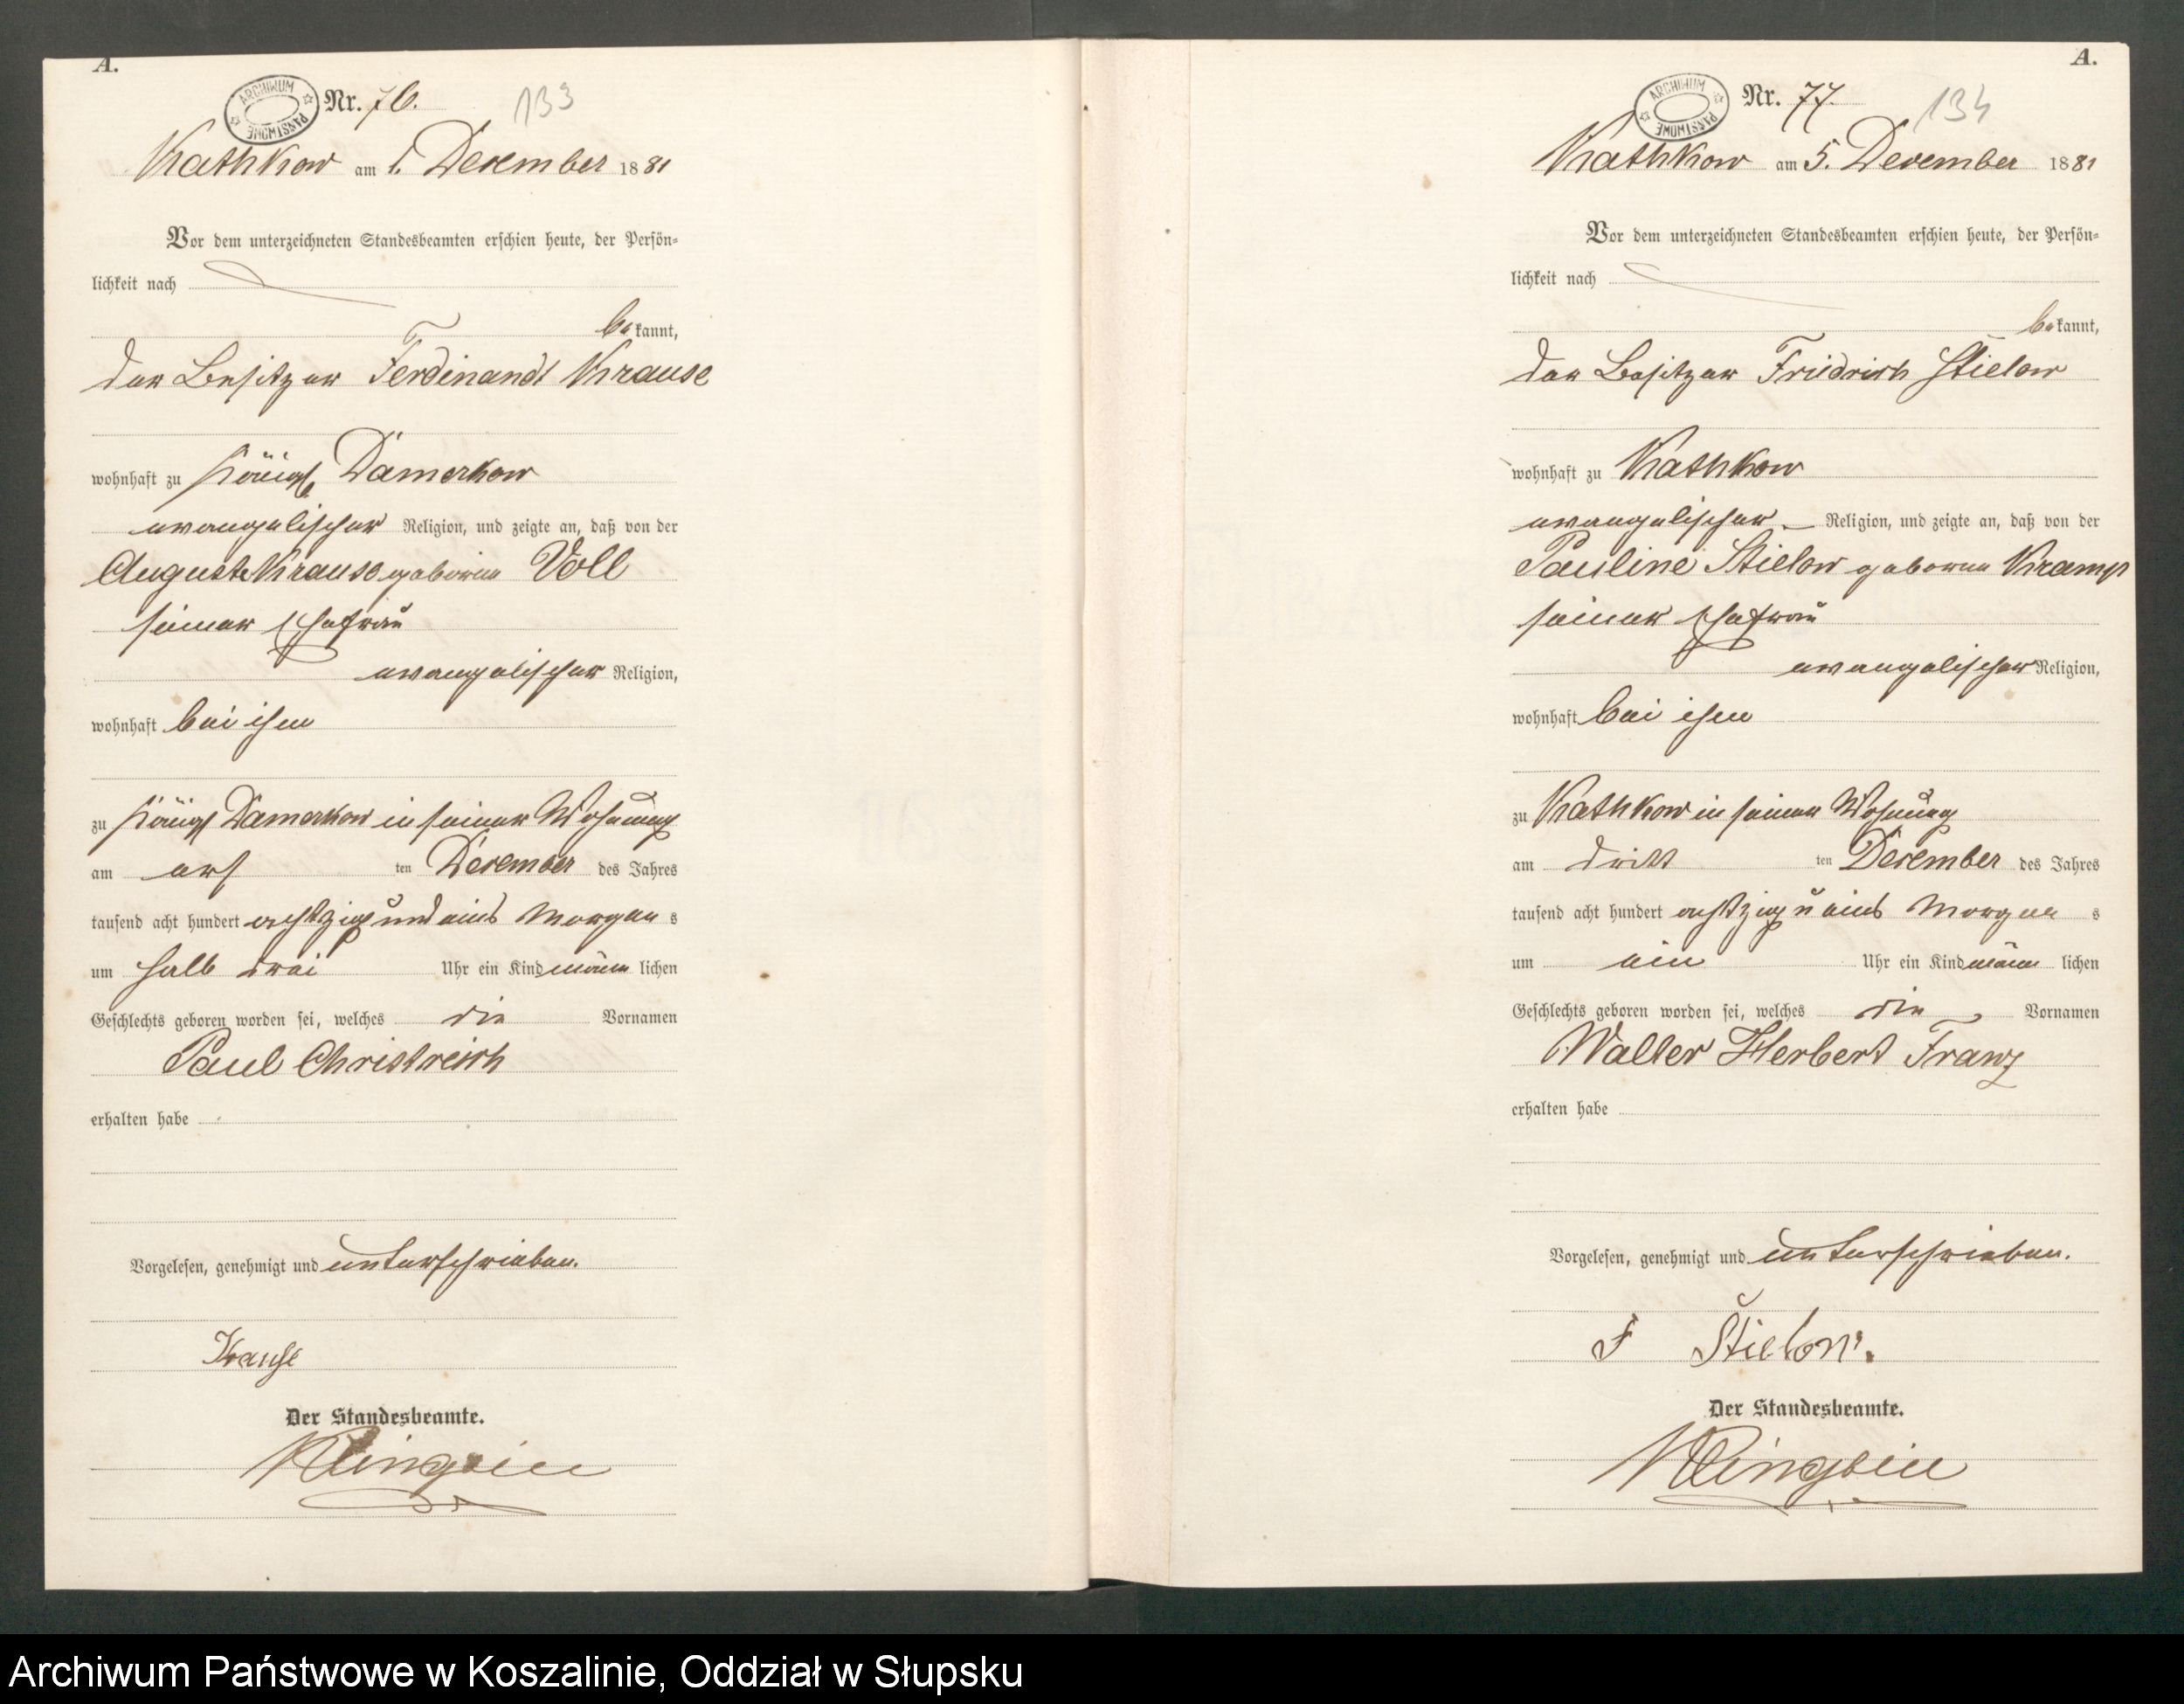 A.
ARCHIWUM PAŃSTWOWE
Nr. 76.
133
Kathkow am 1. December 1881
Vor dem unterzeichneten Standesbeamten erschien heute, der Persön-
lichkeit nach
bekannt,
der Besitzer Ferdinandt Krause
wohnhaft zu Königl. Damerkow
evangelischer Religion, und zeigte an, daß von der
Auguste Krause geborene Voll
seiner Ehefrau
evangelischer Religion,
wohnhaft bei ihm
zu Königl Damerkow in seiner Wohnung
am ersten December des Jahres
tausend acht hundert achtzig und eins Morgens
um halb drei Uhr ein Kind männlichen
Geschlechts geboren worden sei, welches die Vornamen
Paul Christreich
erhalten habe
Vorgelesen, genehmigt und unterschrieben.
Krause
Der Standesbeamte.
Klingbeil
A.
ARCHIWUM PAŃSTWOWE
Nr. 77.
134
Kathkow am 5. December 1881
Vor dem unterzeichneten Standesbeamten erschien heute, der Persön-
lichkeit nach
bekannt,
der Besitzer Friedrich Stielow
wohnhaft zu Kathkow
evangelischer Religion, und zeigte an, daß von der
Pauline Stielow geborene Kramp
seiner Ehefrau
evangelischer Religion,
wohnhaft bei ihm
zu Kathkow in seiner Wohnung
am dritten December des Jahres
tausend acht hundert achtzig u eins Morgens
um ein Uhr ein Kind männlichen
Geschlechts geboren worden sei, welches die Vornamen
Walter Herbert Franz
erhalten habe
Vorgelesen, genehmigt und unterschrieben.
F Stielow.
Der Standesbeamte.
Klingbeil
Archiwum Państwowe w Koszalinie, Oddział w Słupsku